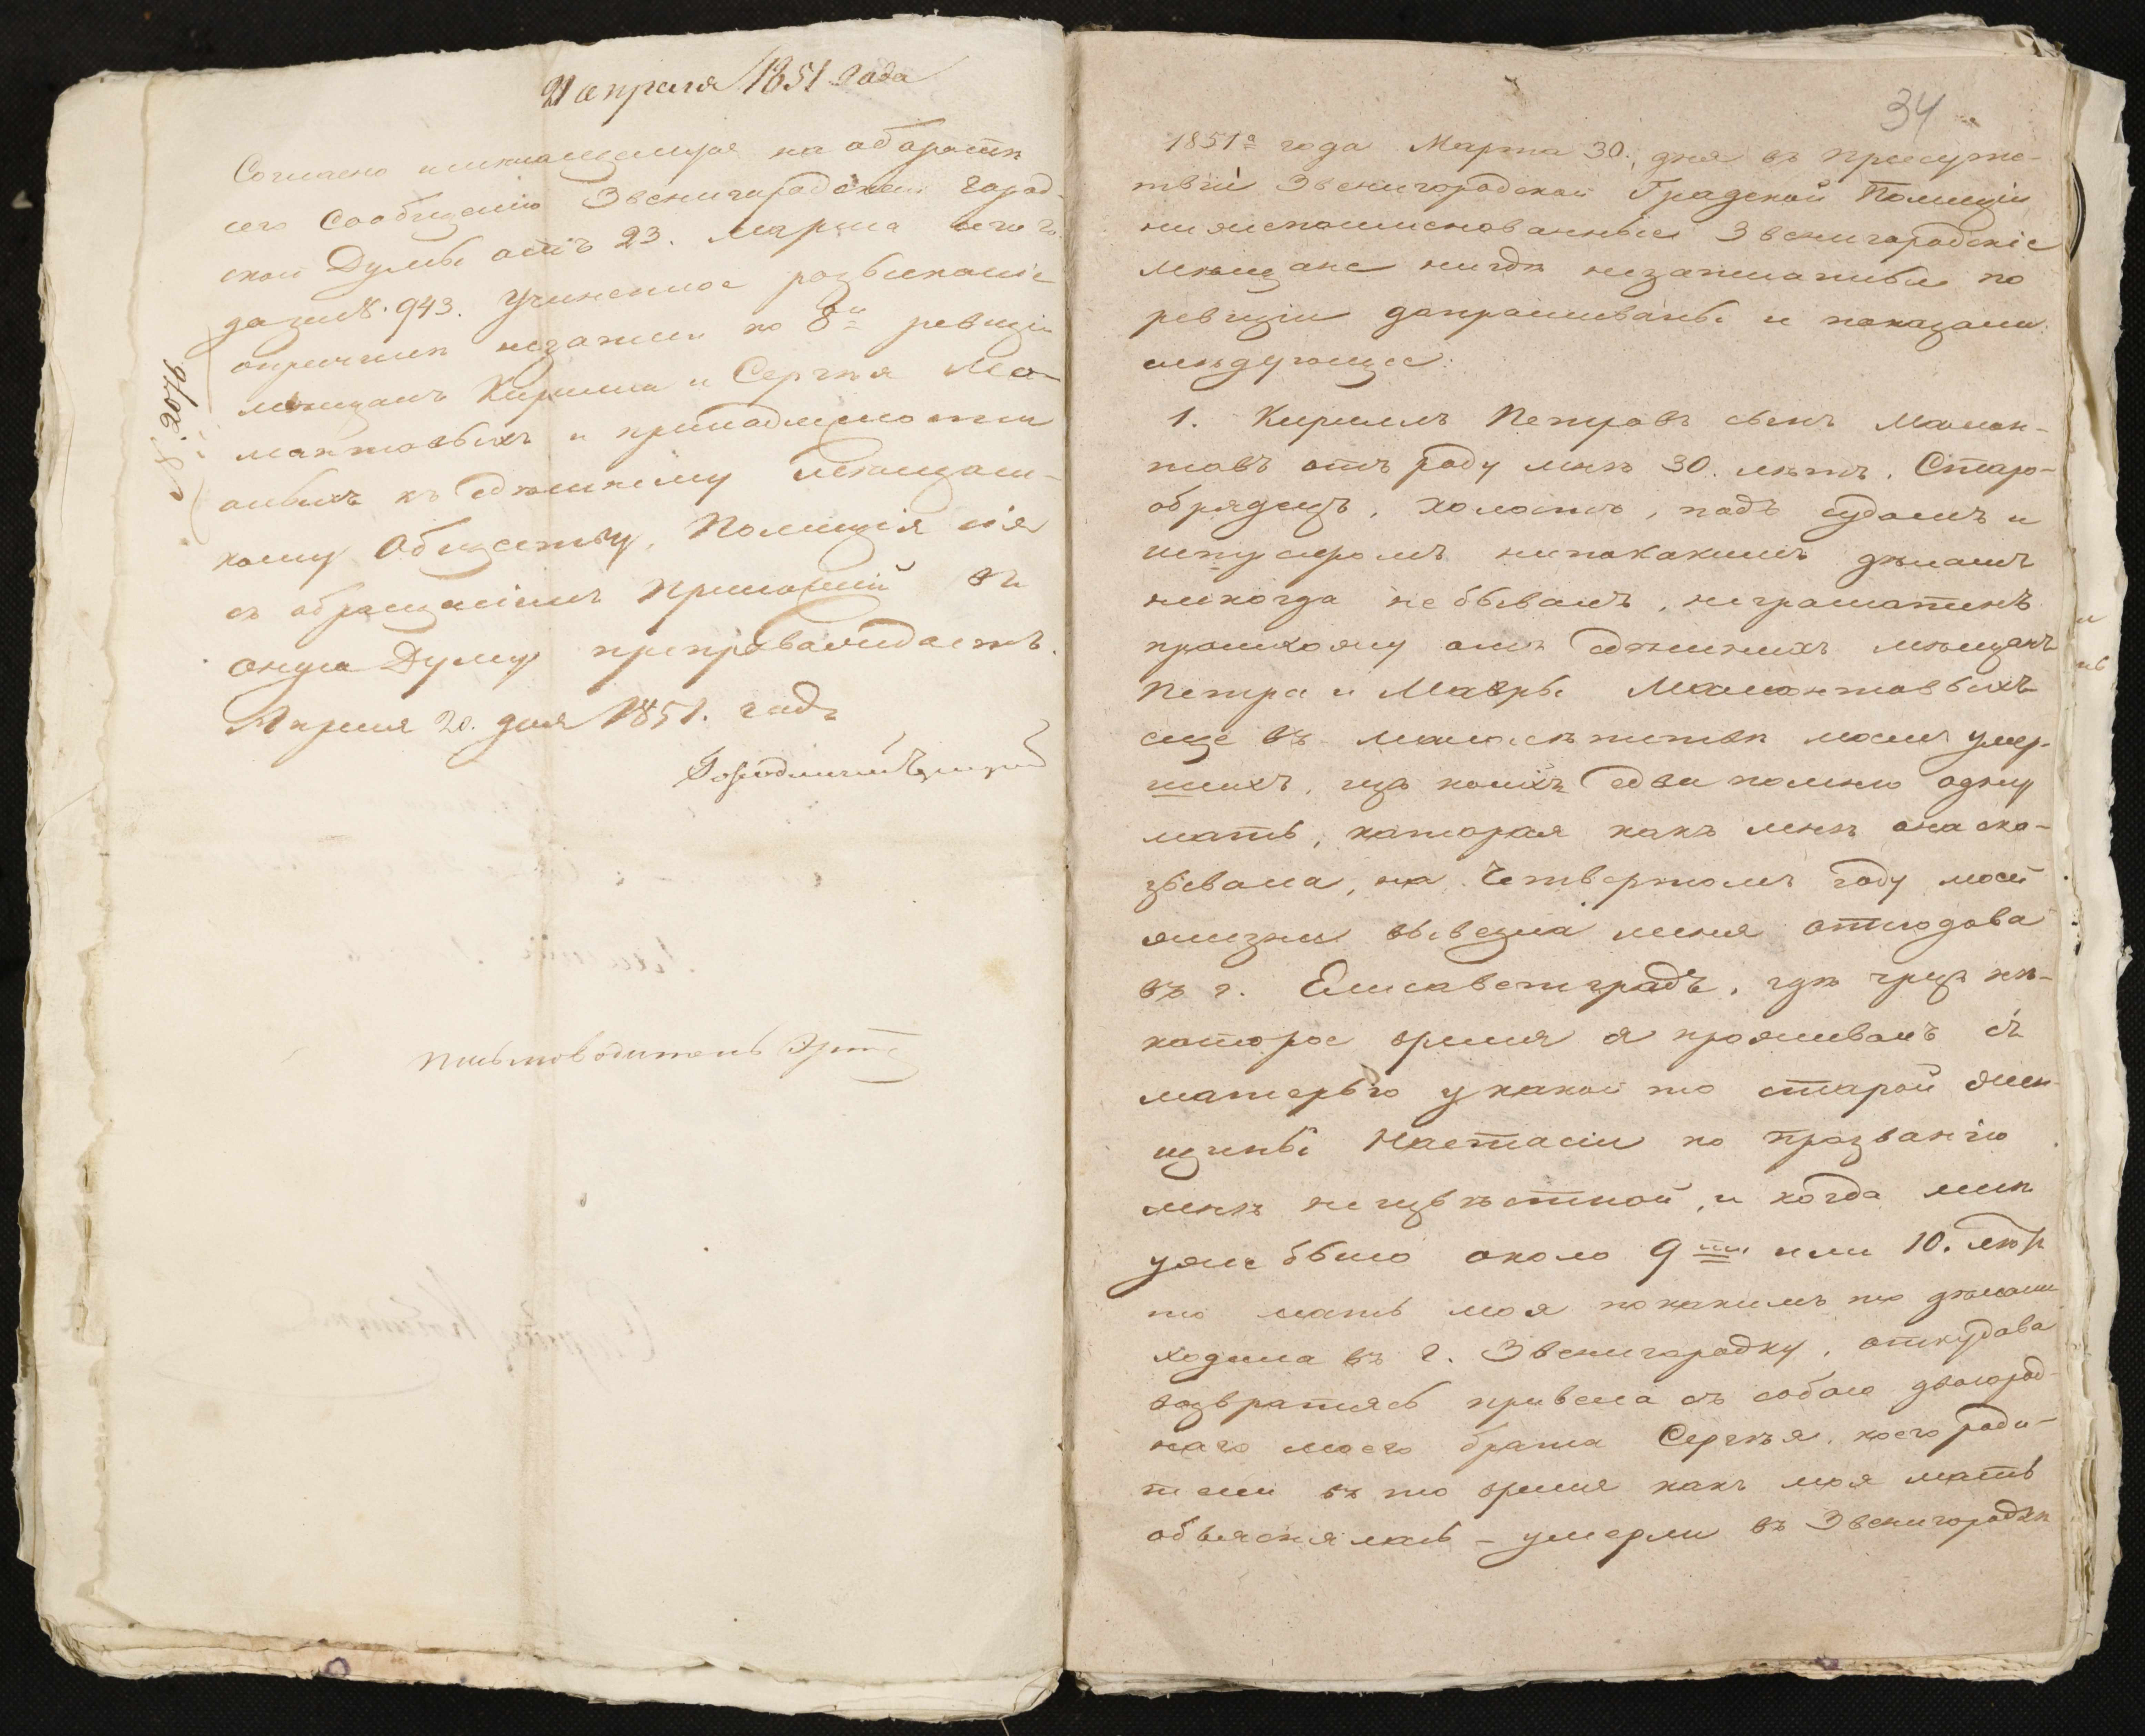 21 апреля 1851 года
Согласно имеющемуся на оборотѣ
сего сообщенію Звенигородской Город-
ской Думы отъ 23. Марта сего г.
за № 943. Учиненное розысканіе
о причинѣ незаписи по 8й ревизіи
мѣщанъ Кирилла и Сергѣя Ма-
монтовыхъ и принадлежности
оныхъ къ здѣшнему мѣщанс-
кому Обществу, Полиція сія
съ обращеніемъ приложеній въ
оную Думу препровождаетъ.
Апреля 20. дня 1851. года
№ 2076.
Городничій
Письмоводитель
34
1851го года Марта 30. дня въ присутс-
твіи Звенигородской Градской Полиціи
нижепоименованные Звенигородскіе
мѣщане нигдѣ незаписаные по
ревизіи допрашиваны и показали
слѣдующее:
1. Кириллъ Петровъ сынъ Мамон-
товъ отъ роду мнѣ 30. лѣтъ, Старо-
обрядецъ, холостъ, подъ судомъ и
штрафомъ нипокакимъ дѣламъ
никогда небывалъ, неграматенъ
происхожу отъ здѣшнихъ мѣщанъ
Петра и Мавры Мамонтовыхъ
еще въ малолѣтствѣ моемъ умер-
шихъ, изъ коихъ едва помню одну
мать, которая какъ мнѣ она ска-
зывала, на Четвертомъ году моей
жизни вывезла меня отсюдова
въ г. Елисаветградъ, гдѣ чрезъ нѣ-
которое время я проживалъ съ
матерью у какой то старой жен-
щины Настасіи по прозванію
мнѣ неизвѣстной, и когда мнѣ
уже было около 9ти или 10. лѣтъ
то мать моя покакимъ то дѣламъ
ходила въ г. Звенигородку, откудова
возвратясь привела съ собою двоюрод-
наго моего брата Сергѣя, коего роди-
тели въ то время какъ моя мать
объясняласъ – умерли въ Звенигородкѣ